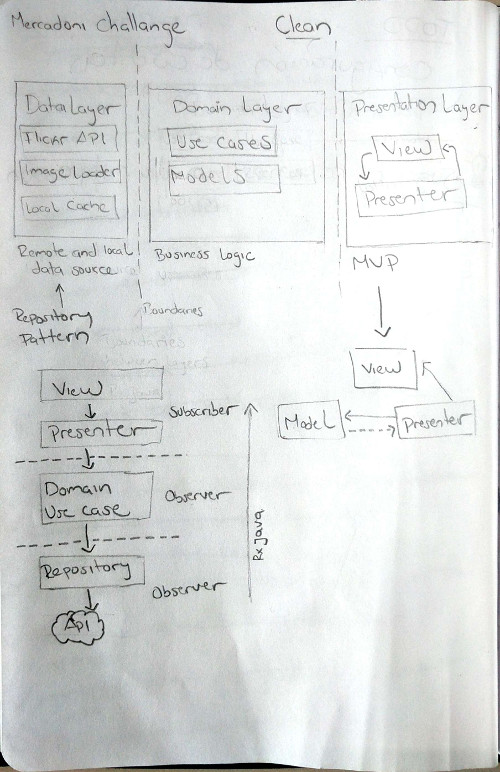 Mercadoni Challange
Clean
Data Layer
Flickr API
Image Loader
Local Cache
Remote and local
data source
Repository
Pattern
Domain Layer
Use Cases
Models
Business Logic
Boundaries
Presentation Layer
View
Presenter
MVP
View
Model
Presenter
View
Presenter
Subscriber
Domain
Use case
Observer
Repository
Observer
Api
Rx Java